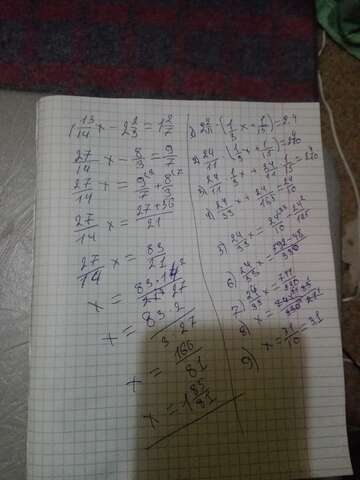 1 13/14 x - 2 2/3 = 1 2/7
27/14 x - 8/3 = 9/7
27/14 x = 9/7 + 8/3
27/14 x = 27+56/21
27/14 x = 83/21
x = 83·14/21·27
x = 83·2/3·27
x = 166/81
x = 1 85/81
1) 2 2/11 · (1/3 x + 1/15) = 2,4
2) 24/11 · (1/3 x + 1/15) = 24/10
3) 24/11 · 1/3 x + 24/11 · 1/15 = 24/10
4) 24/33 x + 24/165 = 24/10
5) 24/33 x = 24/10 - 24/165
6) 24/33 x = 792-48/330
7) 24/33 x = 744/330
8)
x = 31/10 = 3,1
9)